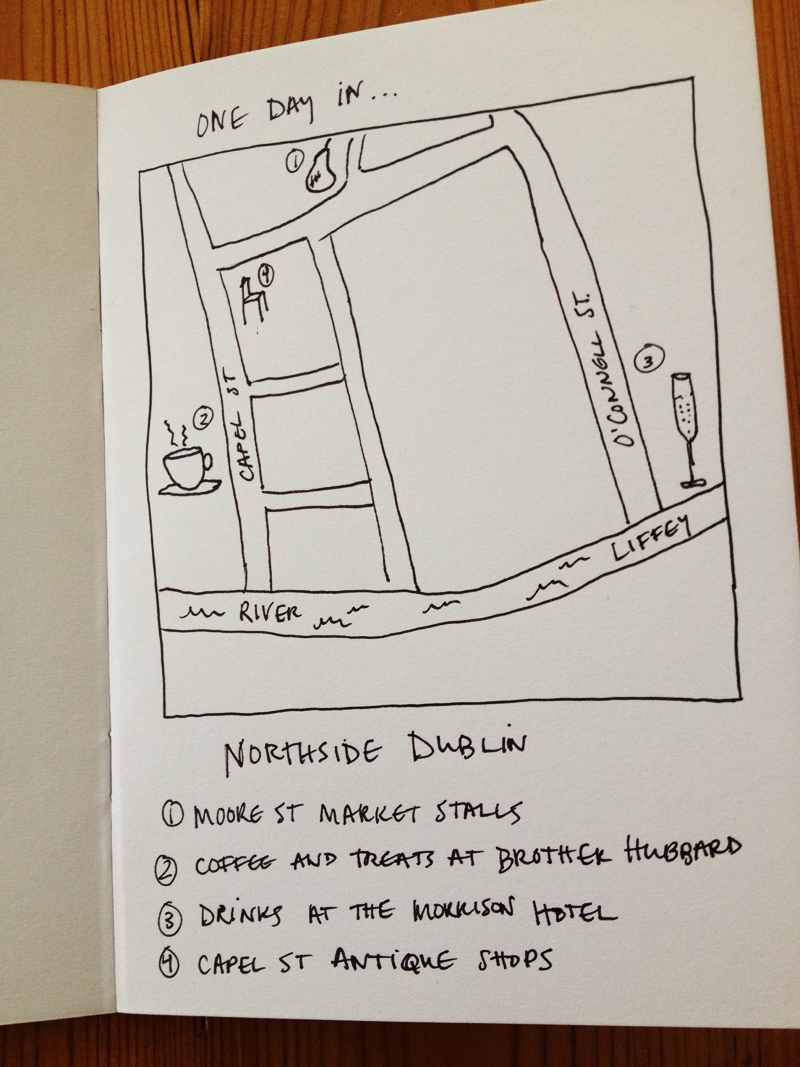 ONE DAY IN...
①
④
CAPEL ST
②
O'CONNELL ST.
③
RIVER LIFFEY
NORTHSIDE DUBLIN
① MOORE ST MARKET STALLS
② COFFEE AND TREATS AT BROTHER HUBBARD
③ DRINKS AT THE MORRISON HOTEL
④ CAPEL ST ANTIQUE SHOPS